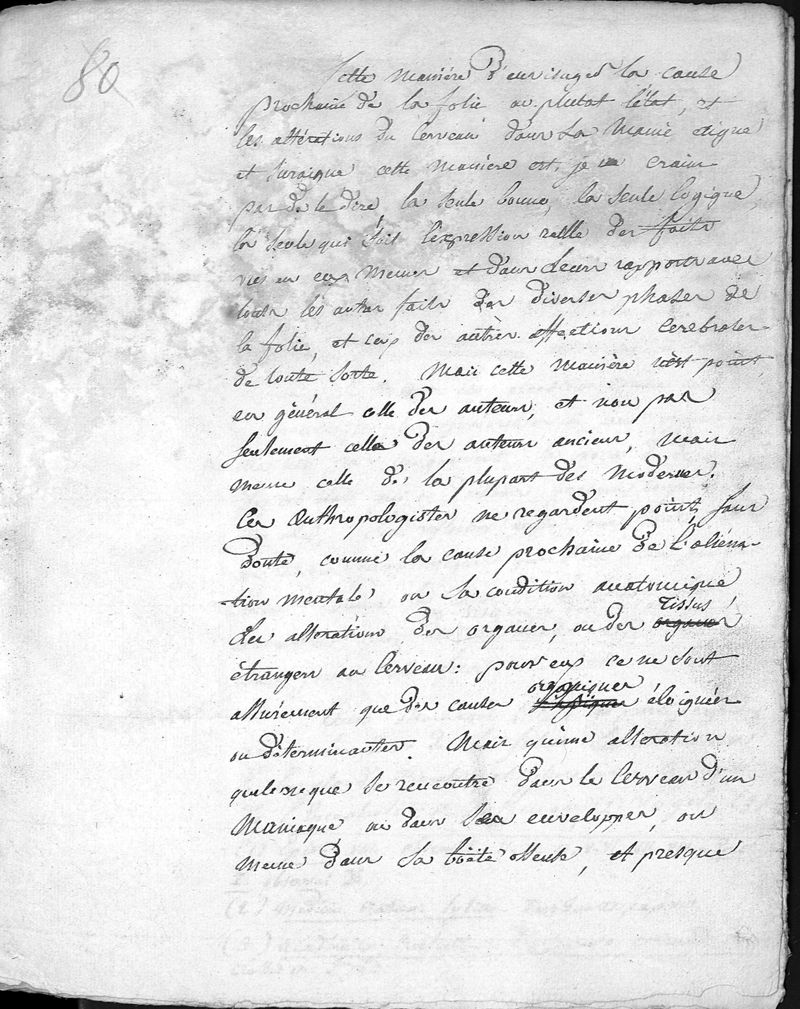 80
Cette manière d'envisager la cause
prochaine de la folie ou plutot l'état, et
les altérations du cerveau dans la manie aigue
et chronique cette manière est, je ne crains
pas de le dire, la seule bonne, la seule logique,
la seule qui soit l'expression réelle des faits
vus en eux memes et dans leurs rapports avec
touts les autres faits des diverses phases de
la folie, et ceux des autres affections cérébrales
de toute sorte. Mais cette manière n'est point
en général celle des auteurs, et non pas
seulement celle des auteurs anciens, mais
meme celle de la plupart des modernes.
Ces anthropologistes ne regardent point, sans
doute, comme la cause prochaine de l'aliéna-
tion mentale ou sa condition anatomique
des altérations des organes, ou des organes tissus
étrangers au cerveau : pour eux ce ne sont
assurément que des causes organiques éloignées
ou déterminantes. Mais qu'une altération
quelconque se rencontre dans le cerveau d'un
maniaque, ou dans ses enveloppes, ou
meme dans sa boëte osseuse, et presque